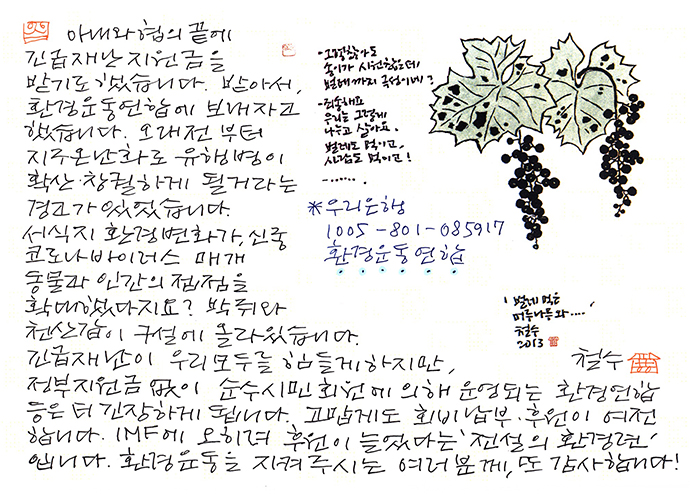 아내와 협의 끝에
긴급재난지원금을
받기로 했습니다. 받아서,
환경운동연합에 보내자고
했습니다. 오래전 부터
지구온난화로 유행병이
확산·창궐하게 될거라는
경고가 있었습니다.
서식지 환경변화가, 신종
코로나바이러스 매개
동물과 인간의 접점을
확대했다지요? 박쥐와
천산갑이 구설에 올라있습니다.
긴급재난이 우리모두를 힘들게하지만,
정부지원금 없이 순수시민 회원에 의해 운영되는 환경연합
등은 더 긴장하게 됩니다. 고맙게도 회비납부·후원이 여전
합니다. IMF에 오히려 후원이 늘었다는 '전설의 환경련'
입니다. 환경운동을 지켜주시는 여러분께, 또 감사합니다!
철수
송이가 시원찮은데
벌레까지 극성이네?
우리는 그렇게
나누고 살아요.
벌레도 먹이고,
사람도 먹이고!
-......
*우리은행
1005-801-085917
환경운동연합
'벌레 먹은
머루나무와....'
철수
2013